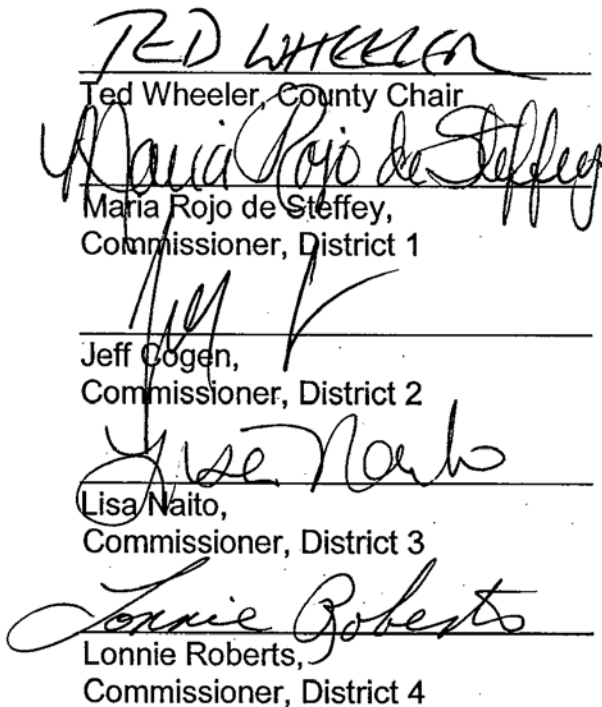 TED WHEELER
Ted Wheeler, County Chair
Maria Rojo de Steffey
Maria Rojo de Steffey,
Commissioner, District 1
Jeff
Jeff Cogen,
Commissioner, District 2
Lisa Naito
Lisa Naito,
Commissioner, District 3
Lonnie Roberts
Lonnie Roberts,
Commissioner, District 4